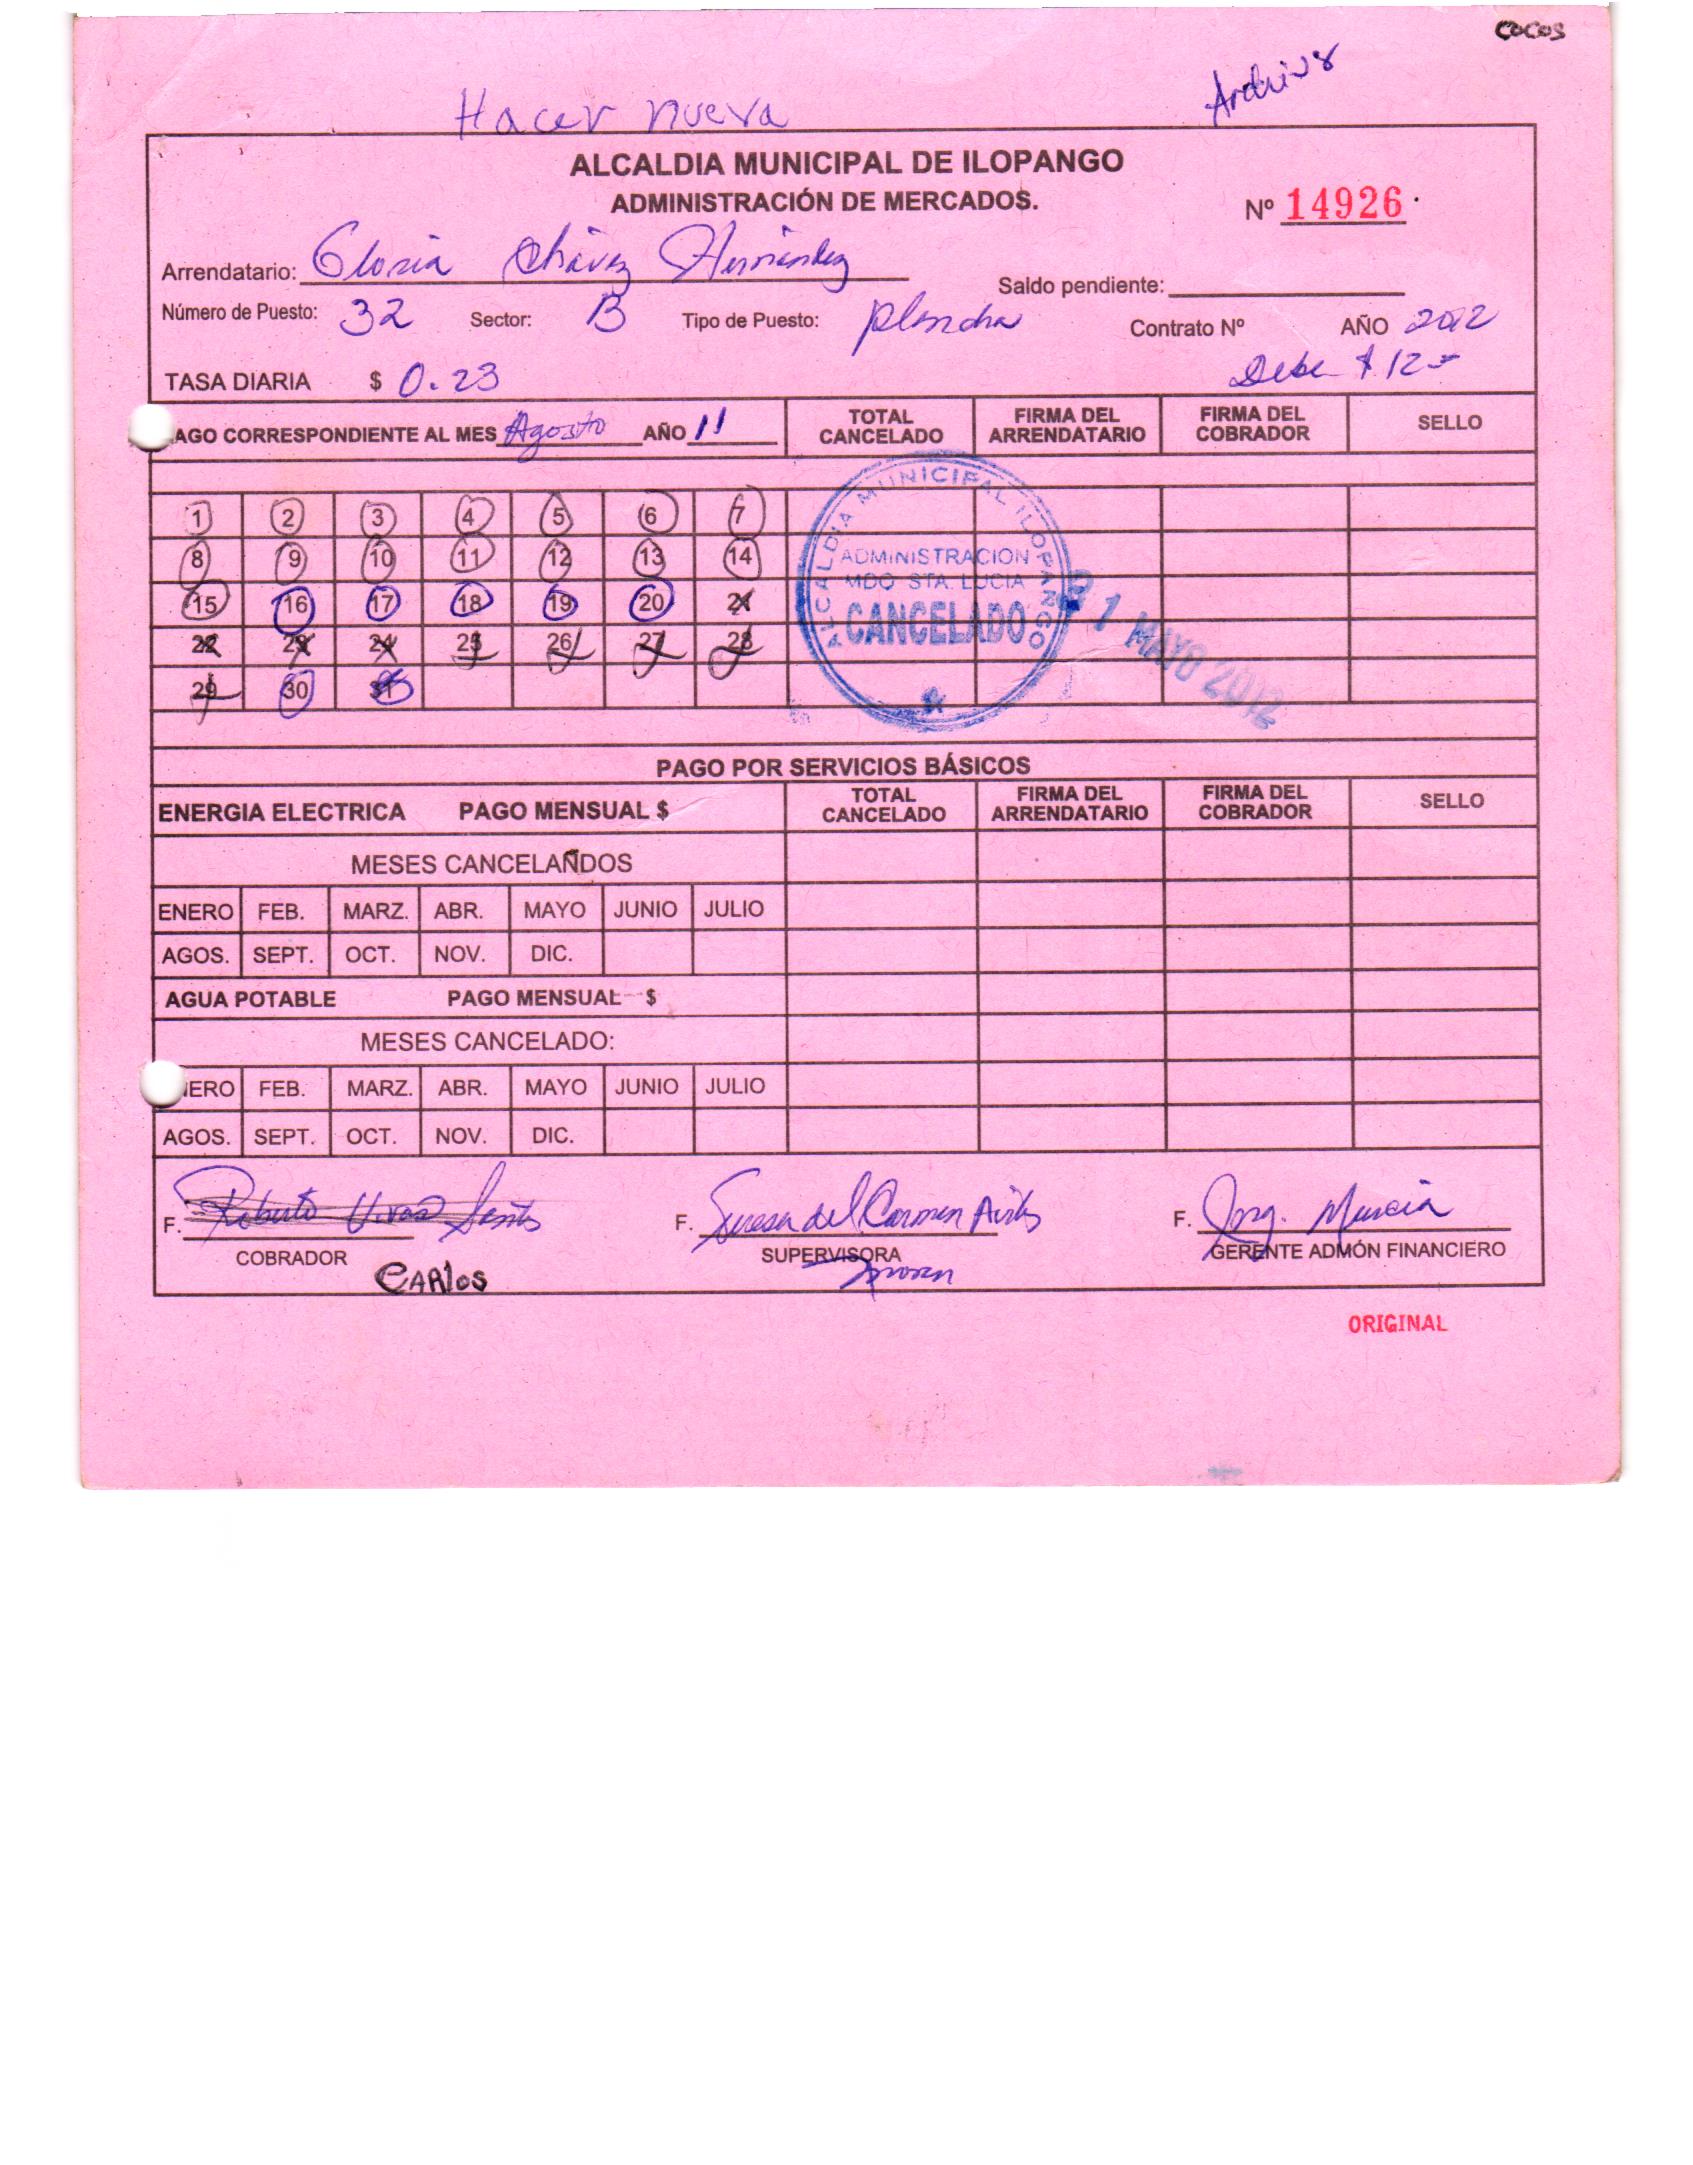 COCOS
Archivo
Hacer nueva
ALCALDIA MUNICIPAL DE ILOPANGO
ADMINISTRACIÓN DE MERCADOS.
Nº 14926
Arrendatario: Gloria Chávez Hernández
Saldo pendiente:
Número de Puesto: 32 Sector: B Tipo de Puesto: plancha Contrato Nº AÑO 2012
TASA DIARIA $ 0.23 Debe $ 12
AGO CORRESPONDIENTE AL MES Agosto AÑO 11 TOTAL CANCELADO FIRMA DEL ARRENDATARIO FIRMA DEL COBRADOR SELLO
1 2 3 4 5 6 7
8 9 10 11 12 13 14
15 16 17 18 19 20 21
22 23 24 25 26 27 28
29 30 31
ALCALDIA MUNICIPAL ILOPANGO
ADMINISTRACION
MDO STA. LUCIA
CANCELADO
31 MAYO 2012
PAGO POR SERVICIOS BÁSICOS
ENERGIA ELECTRICA PAGO MENSUAL $ TOTAL CANCELADO FIRMA DEL ARRENDATARIO FIRMA DEL COBRADOR SELLO
MESES CANCELAÑDOS
ENERO FEB. MARZ. ABR. MAYO JUNIO JULIO
AGOS. SEPT. OCT. NOV. DIC.
AGUA POTABLE PAGO MENSUAL $
MESES CANCELADO:
NERO FEB. MARZ. ABR. MAYO JUNIO JULIO
AGOS. SEPT. OCT. NOV. DIC.
F. Roberto Vivas F. Teresa del Carmen F. Ing. Murcia
COBRADOR SUPERVISORA GERENTE ADMÓN FINANCIERO
CARlOS
ORIGINAL